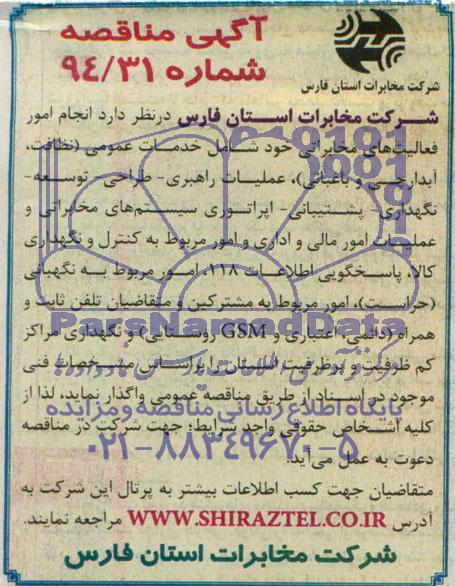 آگهی مناقصه
شماره ۹۴/۳۱
شرکت مخابرات استان فارس
شرکت مخابرات استان فارس درنظر دارد انجام امور
فعالیت‌های مخابراتی خود شامل خدمات عمومی (نظافت،
آبدارچی و باغبانی)، عملیات راهبری- طراحی - توسعه-
نگهداری- پشتیبانی- اپراتوری سیستم‌های مخابراتی و
عملیات امور مالی و اداری و امور مربوط به کنترل و نگهداری
کالا، پاسخگویی اطلاعات ۱۱۸، امور مربوط به نگهبانی
(حراست)، امور مربوط به مشترکین و متقاضیان تلفن ثابت و
همراه (دائمی، اعتباری و GSM روستایی) و نگهداری مراکز
کم ظرفیت و پرظرفیت استان را براساس مشخصات فنی
موجود در اسناد از طریق مناقصه عمومی واگذار نماید، لذا از
کلیه اشخاص حقوقی واجد شرایط؛ جهت شرکت در مناقصه
دعوت به عمل می‌آید.
متقاضیان جهت کسب اطلاعات بیشتر به پرتال این شرکت به
آدرس WWW.SHIRAZTEL.CO.IR مراجعه نمایند.
شرکت مخابرات استان فارس
ParsNamadData
پایگاه اطلاع رسانی مناقصه و مزایده
۰۲۱-۸۸۳۴۹۶۷۰-۵